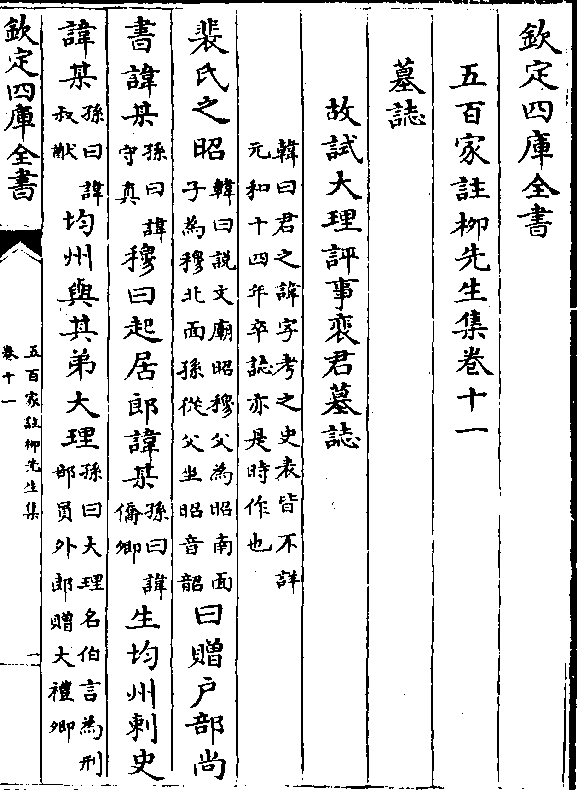 欽定四庫全書
五百家註柳先生集卷十一
墓誌
故試大理評事裴君墓誌
韓曰君之諱字考之史表皆不詳
元和十四年卒誌亦是時作也
裴氏之昭韓曰説文廟昭穆父為昭南面
子為穆北面孫從父坐昭音韶曰贈户部尚
書諱某孫曰諱
守真穆曰起居郎諱某孫曰諱
僑卿生均州刺史
諱某孫曰諱
叔猷均州與其弟大理孫曰大理名伯言為刑
部員外郎贈大禮卿
欽定四庫全書
五百家註柳先生集
卷十一
一